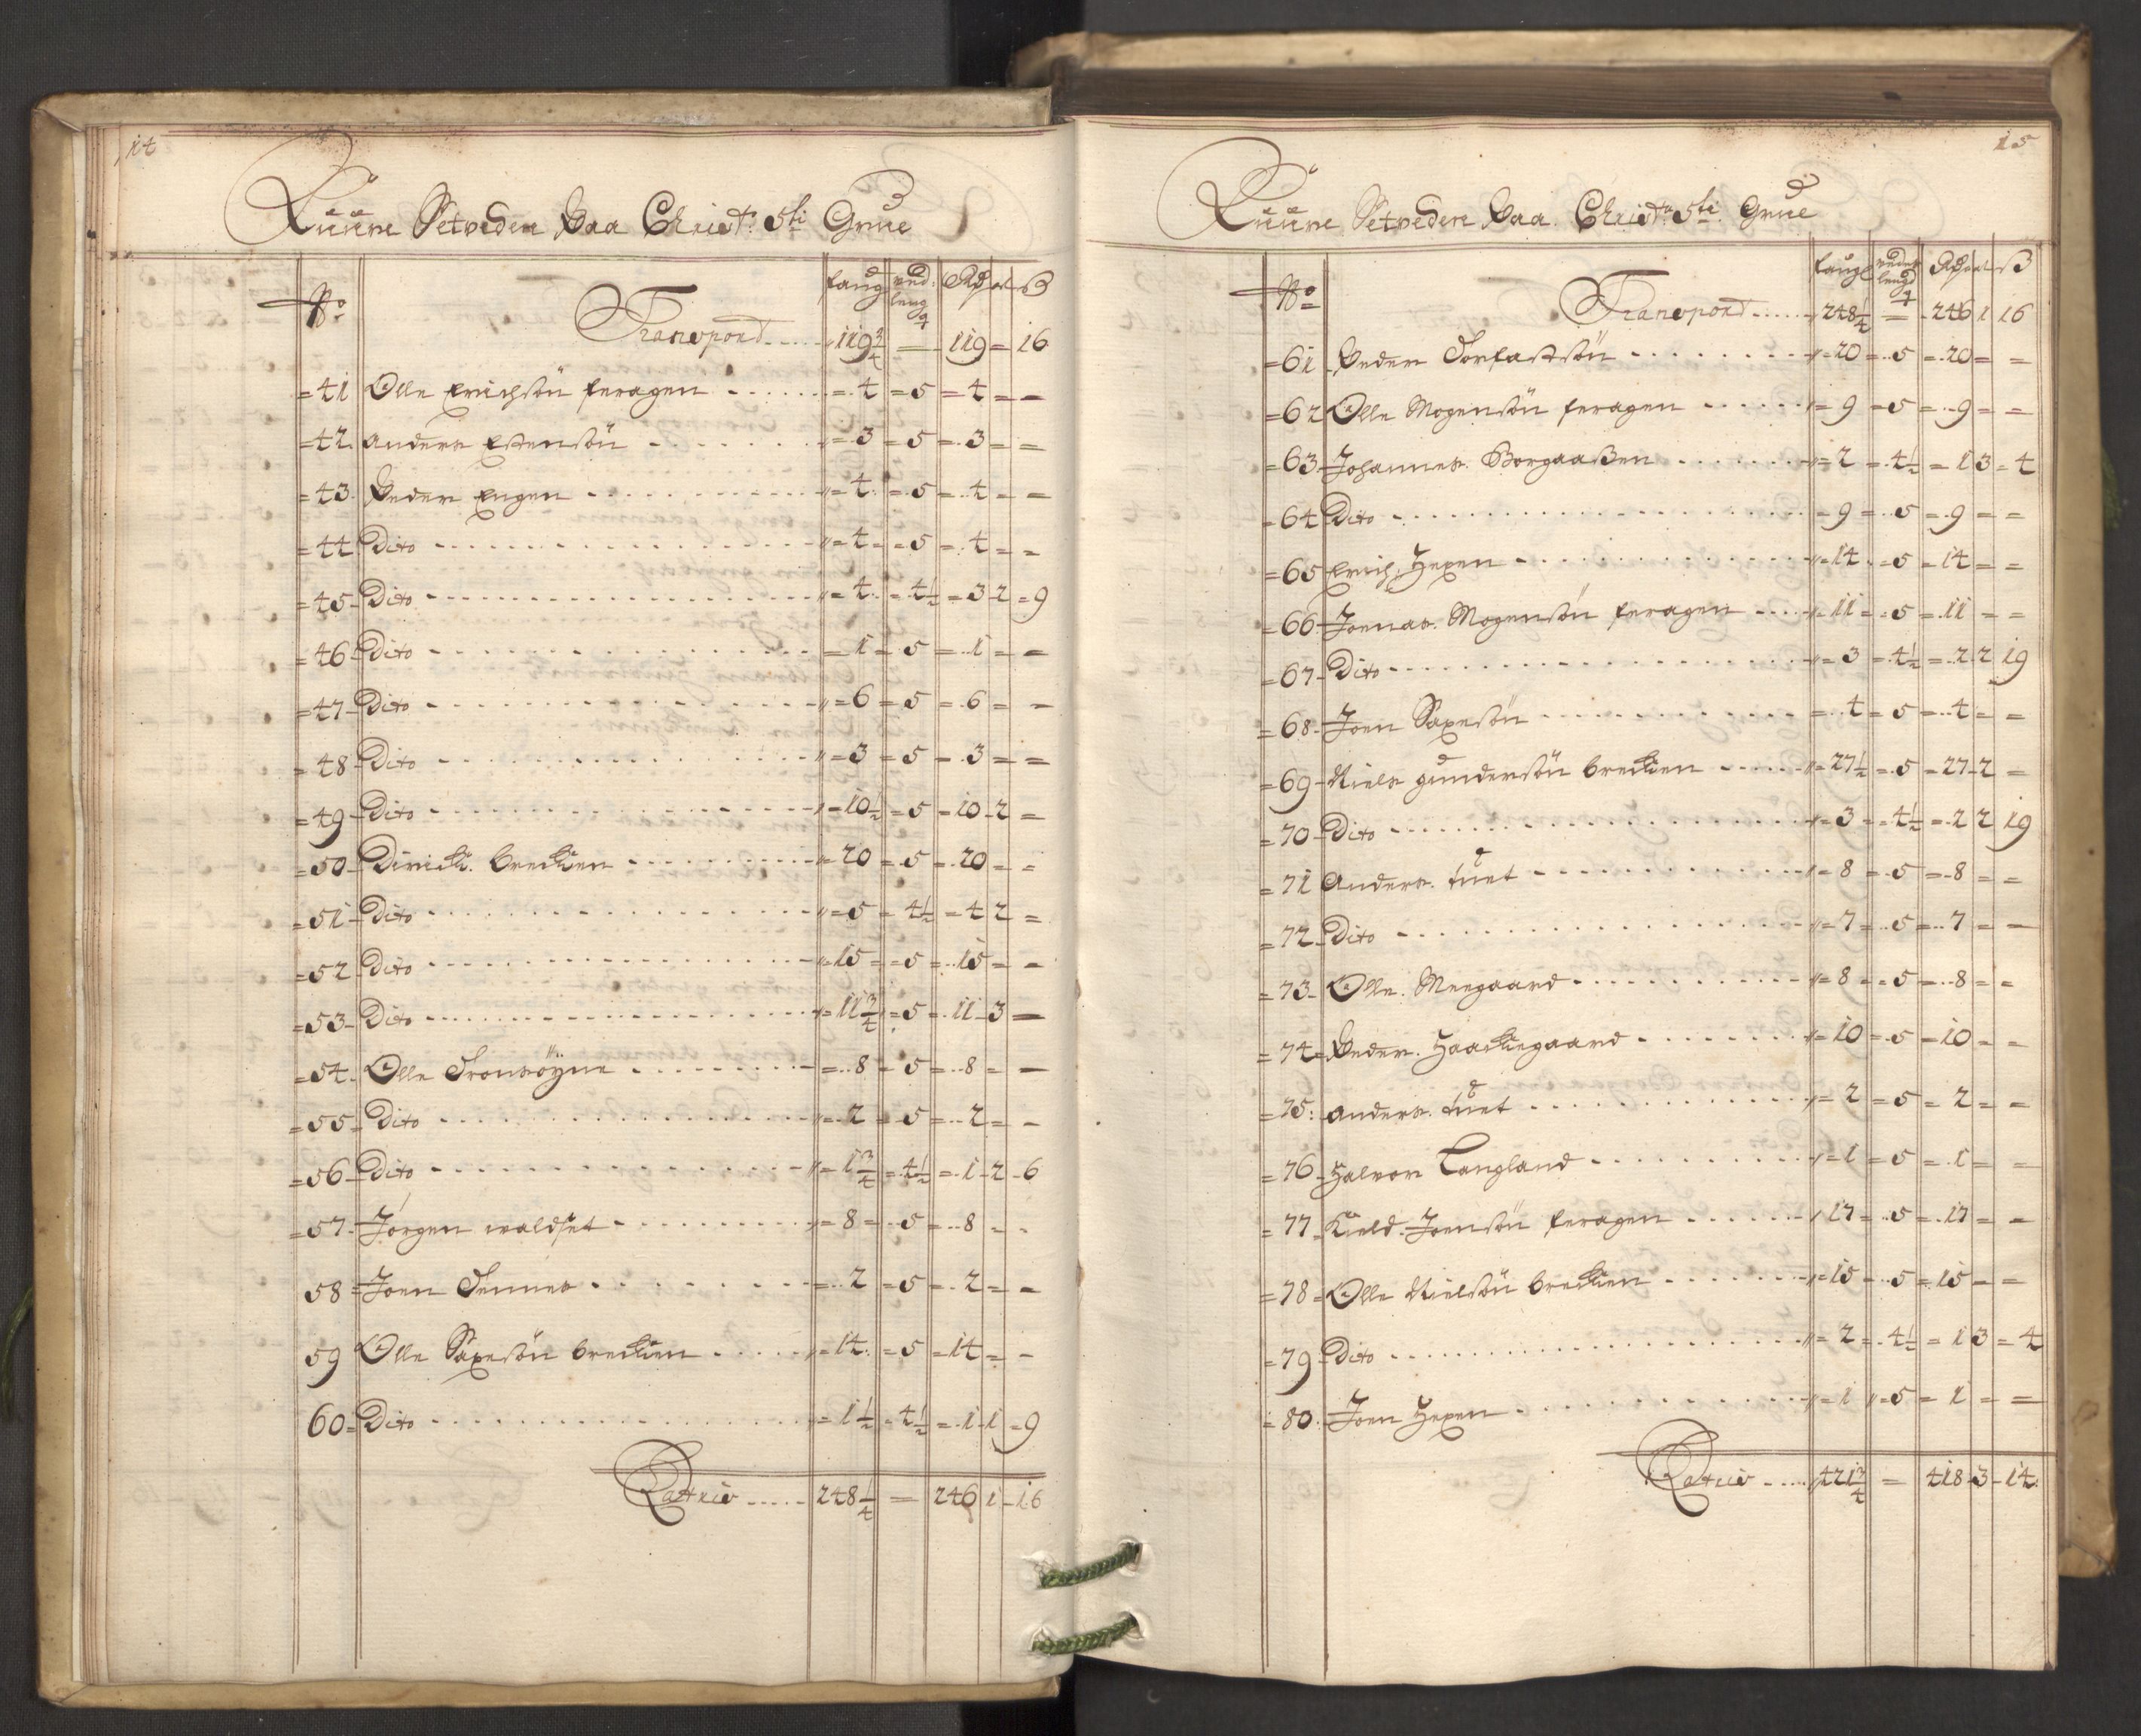 14
Ruüre Setveden Paa Christ: 5ti Grue
No faug ved: leng q Rdr ort ß
Transport 119 3/4 = 119 = 16
=41 Olle Erichsön feragen = 4 = 5 = 4 = =
=42. Anders Estensön = 3 = 5 = 3 = =
=43. Peder Engen = 4 = 5 = 4 = =
=44 Dito = 4 = 5 = 4 = =
=45 Dito = 4 = 4 1/2 = 3 2 = 9
=46 Dito = 1 = 5 = 1 = =
=47 Dito = 6 = 5 = 6 = =
=48 Dito = 3 = 5 = 3 = =
=49 Dito = 10 1/2 = 5 = 10 2 =
=50 Dirich. Brechen = 20 = 5 = 20 = =
=51 Dito = 5 = 4 1/2 = 4 2 =
=52 Dito = 15 = 5 = 15 = =
=53 Dito = 11 3/4 = 5 = 11 3 =
=54. Olle Tronsöyne = 8 = 5 = 8 = =
=55 Dito = 2 = 5 = 2 = =
=56 Dito = 1 3/4 = 4 1/2 = 1 2 6
=57. Jörgen waldset = 8 = 5 = 8 = =
58 = Joen Tennes = 2 = 5 = 2 = =
59 Olle Saxesön Brechen = 14. = 5 = 14 = =
60 = Dito = 1 1/2 = 4 1/2 = 1 1 = 9
Lattris 248 1/4 = 246 1 16
15
Ruüre Setvedere Paa. Christ: 5ti. Grue
No faug veder lengd q Rdr ort ß
Transport 248 1/4 = 246 1 16
=61 Peder Torfastsön = 20 = 5 = 20 = =
=62 Olle Mogensön feragen = 9 = 5 = 9 = =
=63 Johannes. Borgaaßen = 2 = 4 1/2 = 1 3 = 4
=64 Dito = 9 = 5 = 9 = =
=65 Erich. Hexen = 14. = 5 = 14 = =
=66 Joenas. Mogensön feragen = 11 = 5 = 11 = =
=67 Dito = 3 = 4 1/2 = 2 2 19
=68 Joen Saxesön = 4 = 5 = 4 = =
=69 Niels gundersön Brechen = 27 1/2 = 5 = 27 2 =
=70 Dito = 3 = 4 1/2 = 2 2 19
=71 Anders. tuet = 8 = 5 = 8 = =
=72 Dito = 7 = 5 = 7 = =
=73 Olle. Meegaard = 8 = 5 = 8 = =
=74 Peder. Haachegaard = 10 = 5 = 10 = =
=75: Anders. tuet = 2 = 5 = 2 = =
=76 Halvor Langland = 1 = 5 = 1 = =
=77 Kield. Joensön feragen 17 = 5 = 17 = =
=78 Olle Nielsön Brechen = 15 = 5 = 15 = =
=79 Dito = 2 = 4 1/2 = 1 3 = 4
=80. Joen Hexen = 1 = 5 = 1 = =
Lattris 421 3/4 = 418 3 14: